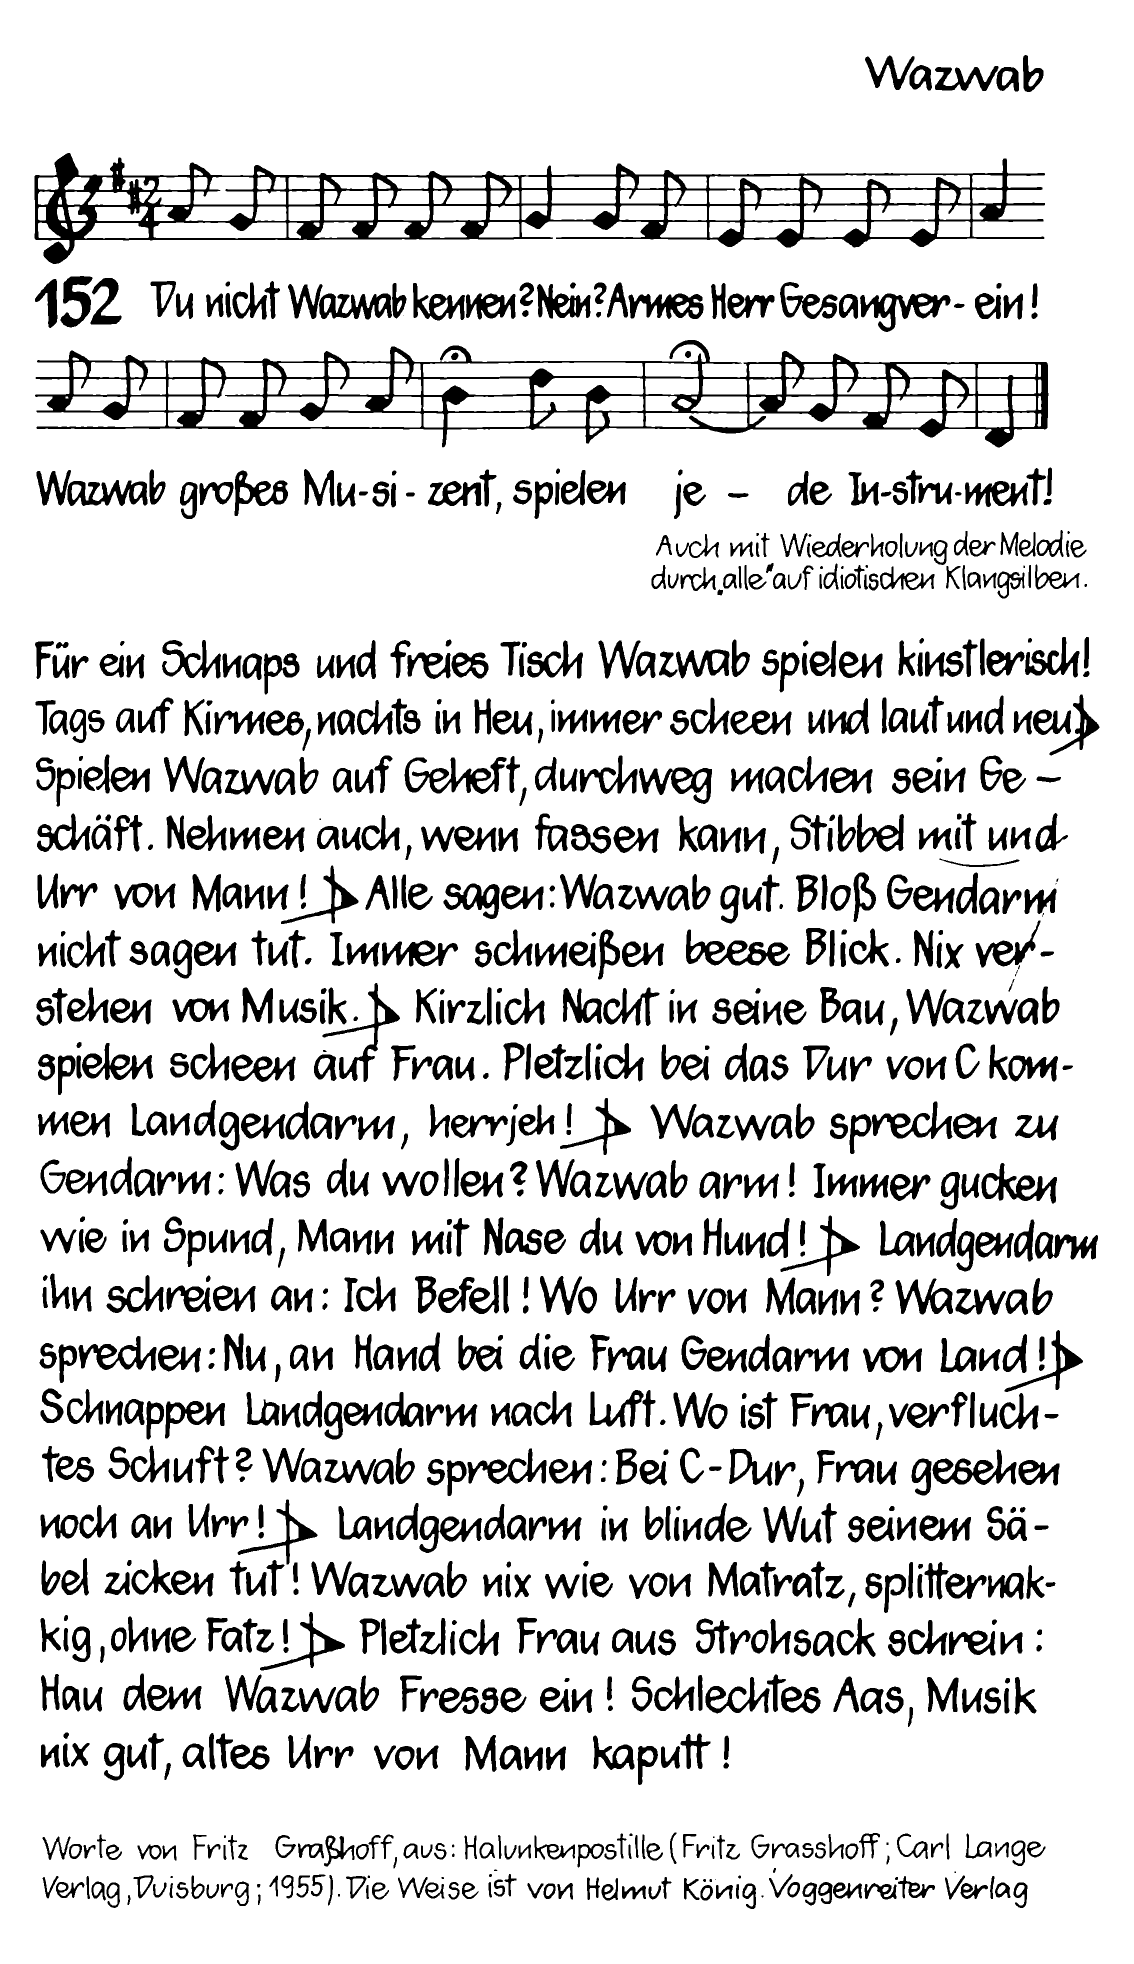 Wazwab
2
4
152 Du nicht Wazwab kennen? Nein? Armes Herr Gesangver - ein!
Wazwab großes Mu-si - zent, spielen je – de In-stru-ment!
Auch mit Wiederholung der Melodie
durch „alle“ auf idiotischen Klangsilben.
Für ein Schnaps und freies Tisch Wazwab spielen kinstlerisch!
Tags auf Kirmes, nachts in Heu, immer scheen und laut und neu.
Spielen Wazwab auf Geheft, durchweg machen sein Ge –
schäft. Nehmen auch, wenn fassen kann, Stibbel mit und
Urr von Mann! Alle sagen: Wazwab gut. Bloß Gendarm
nicht sagen tut. Immer schmeißen beese Blick. Nix ver-
stehen von Musik. Kirzlich Nacht in seine Bau, Wazwab
spielen scheen auf Frau. Pletzlich bei das Dur von C kom-
men Landgendarm, herrjeh! Wazwab sprechen zu
Gendarm: Was du wollen? Wazwab arm! Immer gucken
wie in Spund, Mann mit Nase du von Hund! Landgendarm
ihn schreien an: Ich Befell! Wo Urr von Mann? Wazwab
sprechen: Nu, an Hand bei die Frau Gendarm von Land!
Schnappen Landgendarm nach Luft. Wo ist Frau, verfluch-
tes Schuft? Wazwab sprechen: Bei C-Dur, Frau gesehen
noch an Urr! Landgendarm in blinde Wut seinem Sä-
bel zicken tut! Wazwab nix wie von Matratz, splitternak-
kig, ohne Fatz! Pletzlich Frau aus Strohsack schrein:
Hau dem Wazwab Fresse ein! Schlechtes Aas, Musik
nix gut, altes Urr von Mann kaputt!
Worte von Fritz Graßhoff, aus: Halunkenpostille (Fritz Grasshoff; Carl Lange
Verlag, Duisburg; 1955). Die Weise ist von Helmut König. Voggenreiter Verlag